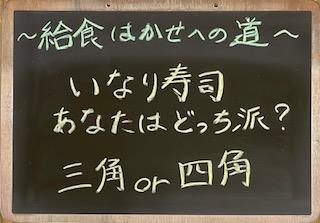 ～給食はかせへの道～
いなり寿司
あなたはどっち派？
三角or四角